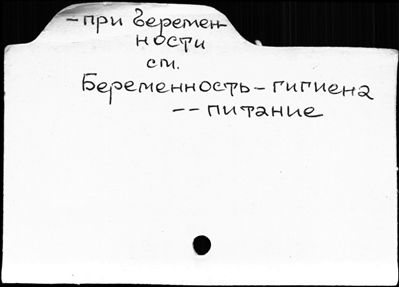 - при беремен-
ности
см.
Беременность - гигиена
-- питание